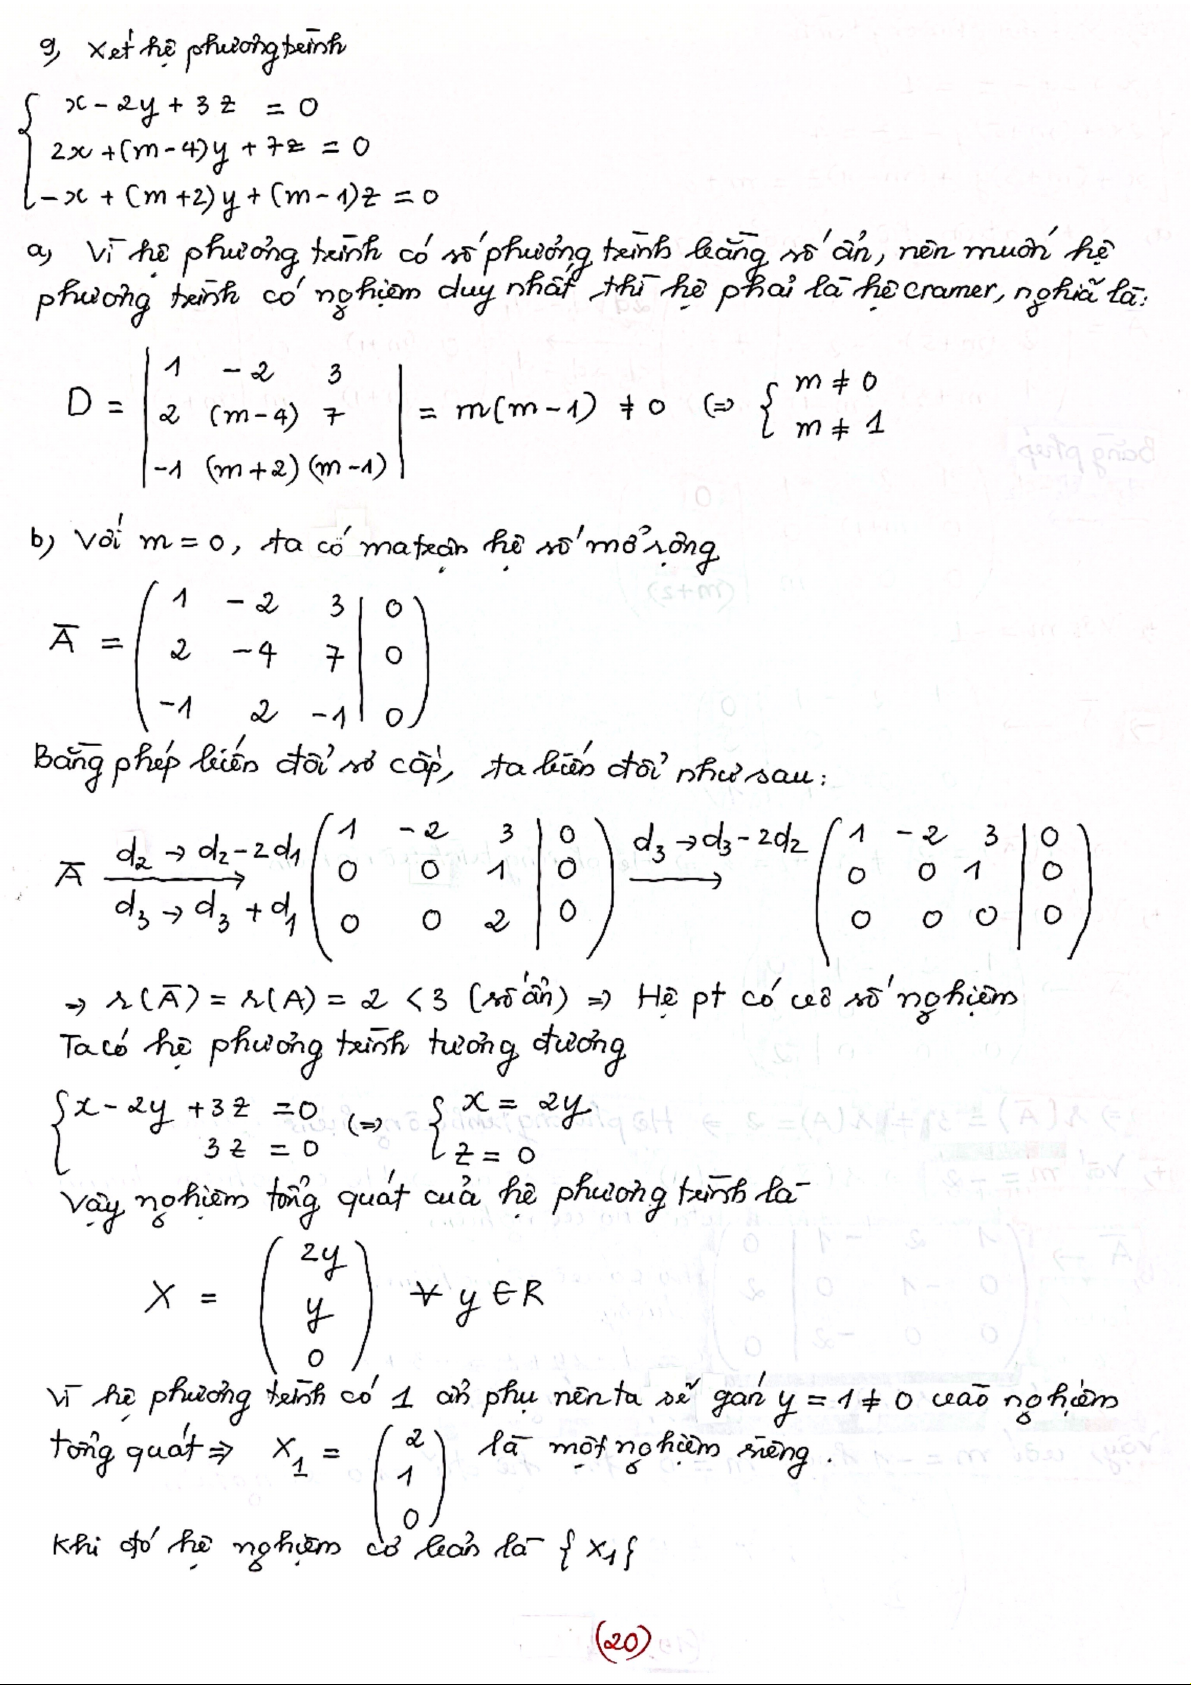 9, Xét hệ phương trình
x - 2y + 3z = 0
2x + (m-4)y + 7z = 0
-x + (m+2)y + (m-1)z = 0
a, Vì hệ phương trình có số phương trình bằng số ẩn, nên muốn hệ
phương trình có nghiệm duy nhất thì hệ phải là hệ cramer, nghĩa là:
1 -2 3
D = 2 (m-4) 7 = m(m-1) ≠ 0 (=> { m ≠ 0
m ≠ 1
-1 (m+2) (m-1)
b, Với m = 0, ta có ma trận hệ số mở rộng
1 -2 3 | 0
Ā = 2 -4 7 | 0
-1 2 -1 | 0
Bằng phép biến đổi sơ cấp, ta biến đổi như sau:
d2 → d2 - 2d1 1 -2 3 | 0 d3 → d3 - 2d2 1 -2 3 | 0
Ā 0 0 1 | 0 0 0 1 | 0
d3 → d3 + d1 0 0 2 | 0 0 0 0 | 0
=> r(Ā) = r(A) = 2 < 3 (số ẩn) => Hệ pt có vô số nghiệm
Ta có hệ phương trình tương đương
x - 2y + 3z = 0 (=> { x = 2y
3z = 0 z = 0
Vậy nghiệm tổng quát của hệ phương trình là
2y
X = y ∀ y ∈ R
0
Vì hệ phương trình có 1 ẩn phụ nên ta sẽ gán y = 1 ≠ 0 vào nghiệm
2
tổng quát => X1 = 1 là một nghiệm riêng.
0
Khi đó hệ nghiệm cơ bản là {X1}
(20)